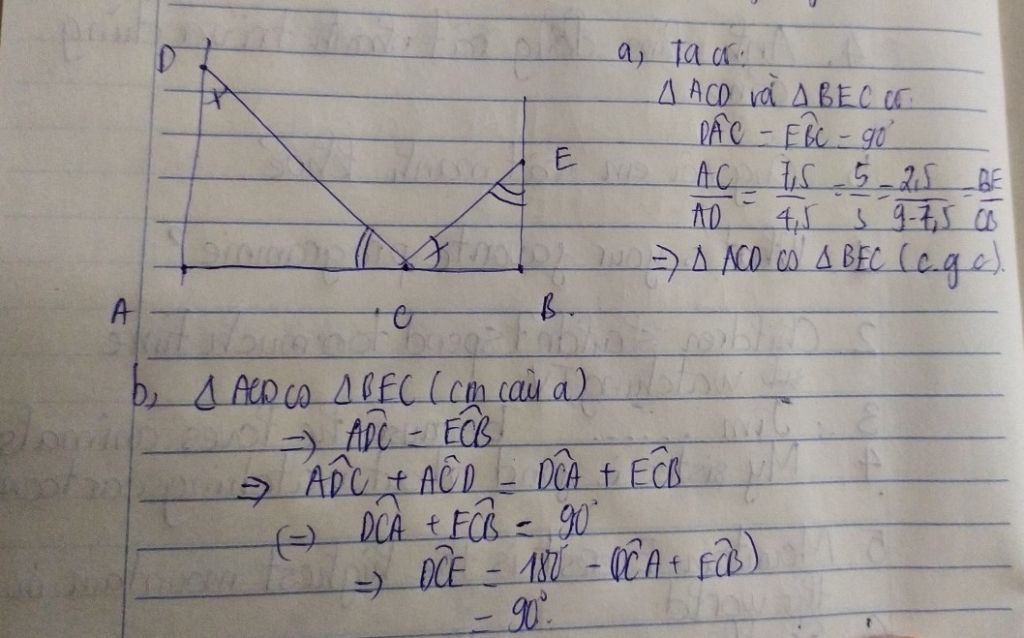 D
E
A
C
B.
a, Ta có:
Δ ACD và Δ BEC có:
DÂC = EB̂C = 90°
AC/AD = 7,5/4,5 = 5/3 = 2,5/9-7,5 = BE/CB
=> Δ ACD ∽ Δ BEC (c.g.c).
b, Δ ACD ∽ Δ BEC (cm câu a)
=> AD̂C = EĈB
=> AD̂C + AĈD = DĈA + EĈB
(=) DĈA + EĈB = 90°
=> DĈE = 180° - (DĈA + EĈB)
= 90°.